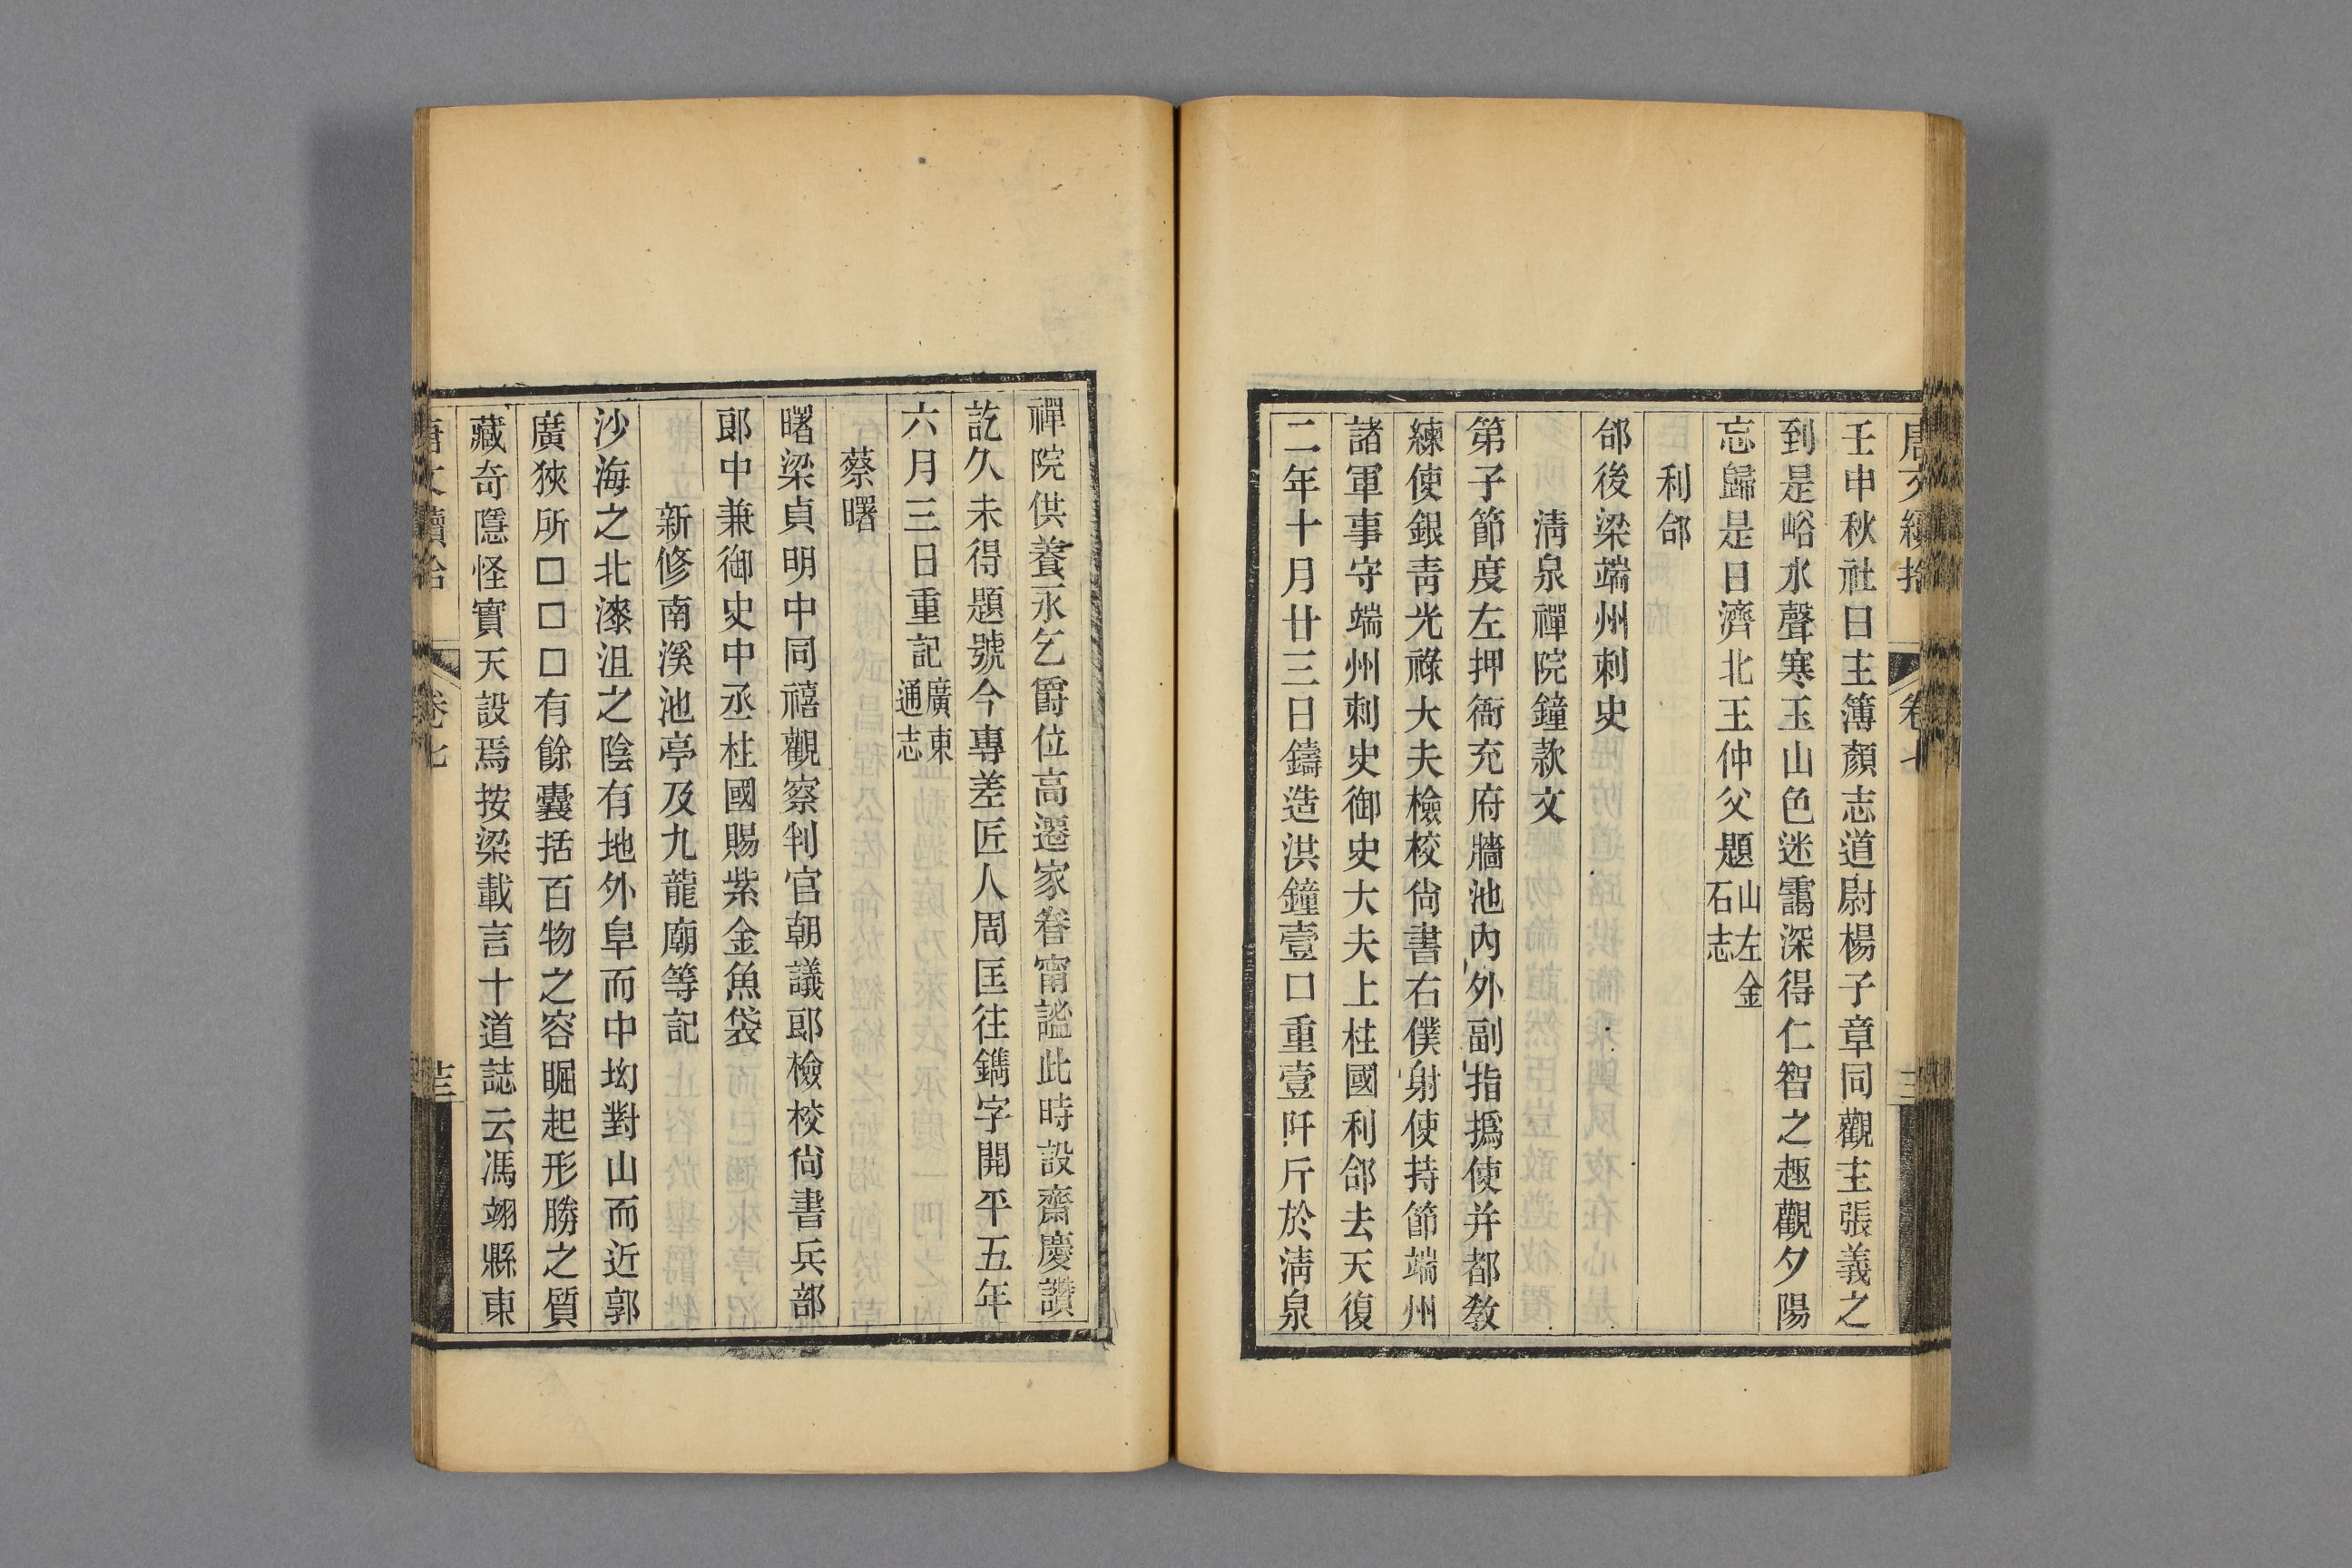 唐文續拾
卷七
壬申秋社日主簿顏志道尉楊子章同觀主張義之
到是峪水聲寒玉山色迷靄深得仁智之趣觀夕陽
忘歸是日濟北王仲父題山左金石志
利郃
郃後梁端州刺史
淸泉禪院鐘款文
第子節度左押衙充府牆池內外副指撝使并都敎
練使銀靑光祿大夫檢校尙書右僕射使持節端州
諸軍事守端州刺史御史大夫上柱國利郃去天復
二年十月廿三日鑄造洪鐘壹口重壹阡斤於淸泉
禪院供養永乞爵位高遷家眷甯謐此時設齋慶讚
訖久未得題號今專差匠人周匡往鐫字開平五年
六月三日重記廣東通志
蔡曙
曙梁貞明中同禧觀察判官朝議郎檢校尙書兵部
郎中兼御史中丞柱國賜紫金魚袋
新修南溪池亭及九龍廟等記
沙海之北漆沮之陰有地外阜而中坳對山而近郭
廣狹所□□□有餘囊括百物之容崛起形勝之質
藏奇隱怪實天設焉按梁載言十道誌云馮翊縣東
唐文續拾
卷七